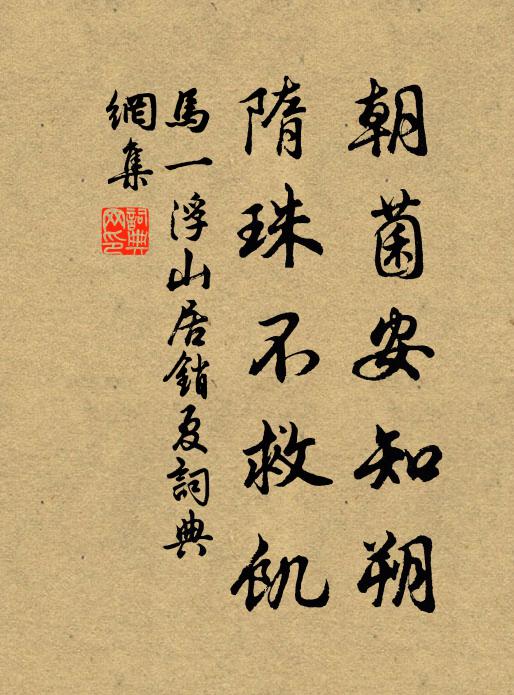 朝菌安知朔
隋珠不救飢
馬一浮山居銷夏詞典
網集
詞典網印